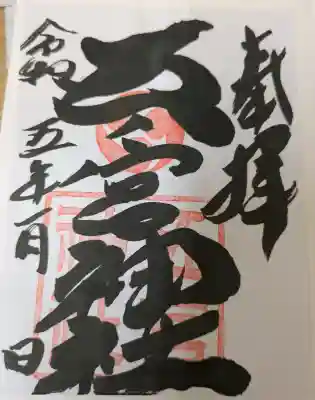 奉拝
宮神社
令和五年一月 日